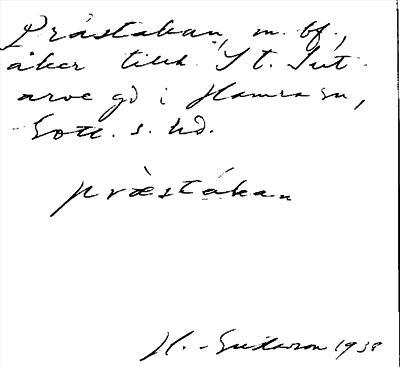 Prästakan, m. bf.,
åker tillh. St. Sut-
arve gd i Hamra sn,
Gotl. s. hd.
præ̀stákan
H. Gustavson 1938